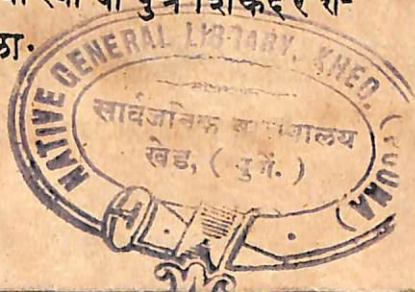 पुत्र शिकंदर रा-
ला.
NATIVE GENERAL LIBRARY, KHED. (POONA)
सार्वजनिक वाचनालय
खेड, ( पुणें. )